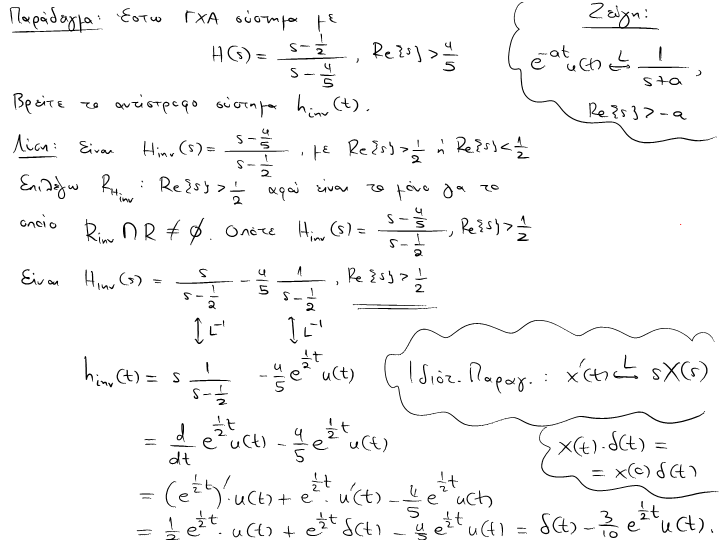 Παράδειγμα: Έστω ΓΧΑ σύστημα με
H(s) = (s - 1/2)/(s - 4/5), Re{s} > 4/5
Βρείτε το αντίστροφο σύστημα h_inv(t).
Ζεύγη:
e^{-at}u(t) ↔^L 1/(s+a),
Re{s} > -a
Λύση: Είναι H_inv(s) = (s - 4/5)/(s - 1/2), με Re{s} > 1/2 ή Re{s} < 1/2
Επιλέγω R_{H_inv}: Re{s} > 1/2 αφού είναι το μόνο για το
οποίο R_inv ∩ R ≠ ∅. Οπότε H_inv(s) = (s - 4/5)/(s - 1/2), Re{s} > 1/2
Είναι H_inv(s) = s/(s - 1/2) - 4/5 1/(s - 1/2), Re{s} > 1/2
↕ L^{-1} ↕ L^{-1}
h_inv(t) = s 1/(s - 1/2) - 4/5 e^{1/2 t}u(t)
Ιδιότ. Παραγ.: x'(t) ↔^L sX(s)
= d/dt e^{1/2 t}u(t) - 4/5 e^{1/2 t}u(t)
x(t)·δ(t) =
= x(0)δ(t)
= (e^{1/2 t})'·u(t) + e^{1/2 t}·u'(t) - 4/5 e^{1/2 t}u(t)
= 1/2 e^{1/2 t}·u(t) + e^{1/2 t}δ(t) - 4/5 e^{1/2 t}u(t) = δ(t) - 3/10 e^{1/2 t}u(t).